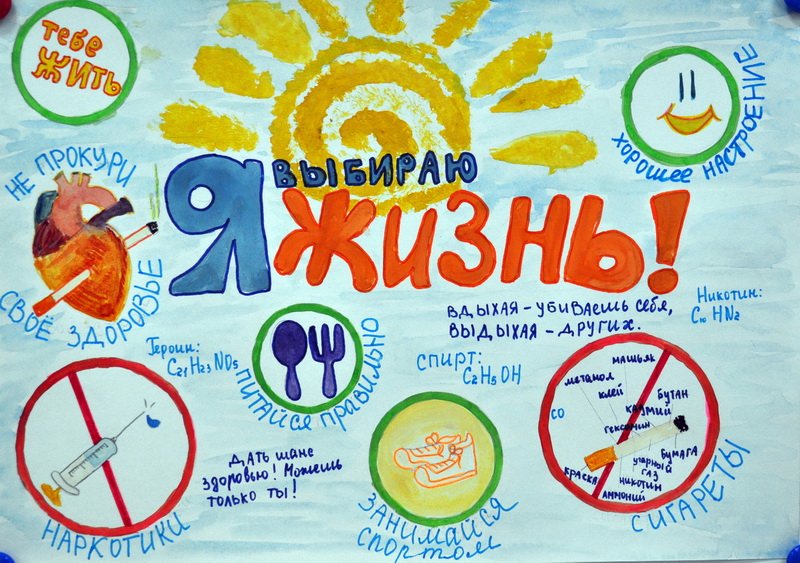 тебе
ЖИТЬ
Я ВЫБИРАЮ
ЖИЗНЬ!
ХОРОШЕЕ НАСТРОЕНИЕ
НЕ ПРОКУРИ
СВОЁ ЗДОРОВЬЕ
ВДЫХАЯ-УБИВАЕШЬ СЕБЯ,
ВЫДЫХАЯ-ДРУГИХ.
Никотин:
C₁₀HN₂
Героин:
C₂₁H₂₃NO₅
ПИТАЙСЯ ПРАВИЛЬНО
СПИРТ:
C₂H₅OH
ДАТЬ ШАНС
ЗДОРОВЬЮ! МОЖЕШЬ
ТОЛЬКО ТЫ!
НАРКОТИКИ
ЗАНИМАЙСЯ
СПОРТОМ
МЫШЬЯК
МЕТАНОЛ
КЛЕЙ
БУТАН
КАДМИЙ
CO
ГЕКСАМИН
БУМАГА
УГАРНЫЙ
ГАЗ
КРАСКА
НИКОТИН
АММОНИЙ
СИГАРЕТЫ